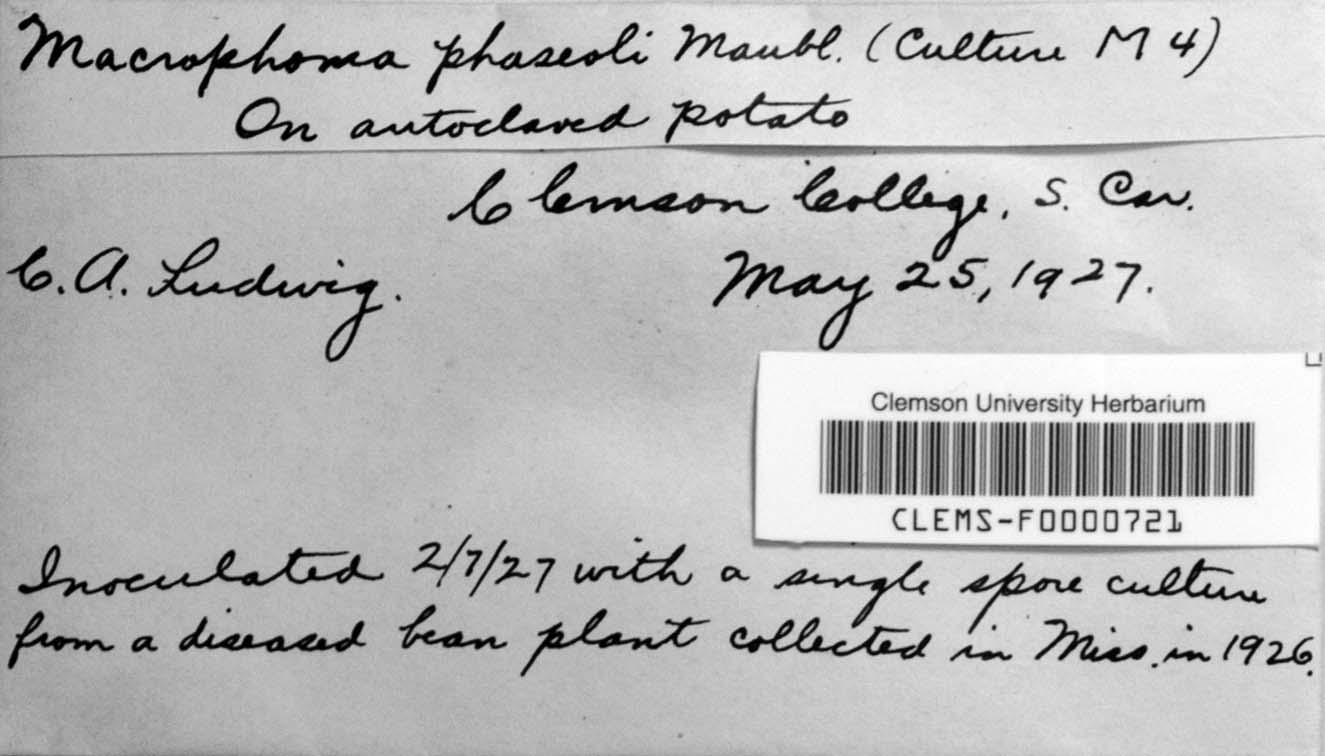 Macrophoma phaseoli Maubl. (Culture M 4)
On autoclaved potato
Clemson College, S. Car.
C. A. Ludwig.
May 25, 1927.
Clemson University Herbarium
CLEMS-F0000721
Inoculated 2/7/27 with a single spore culture
from a diseased bean plant collected in Miss. in 1926.